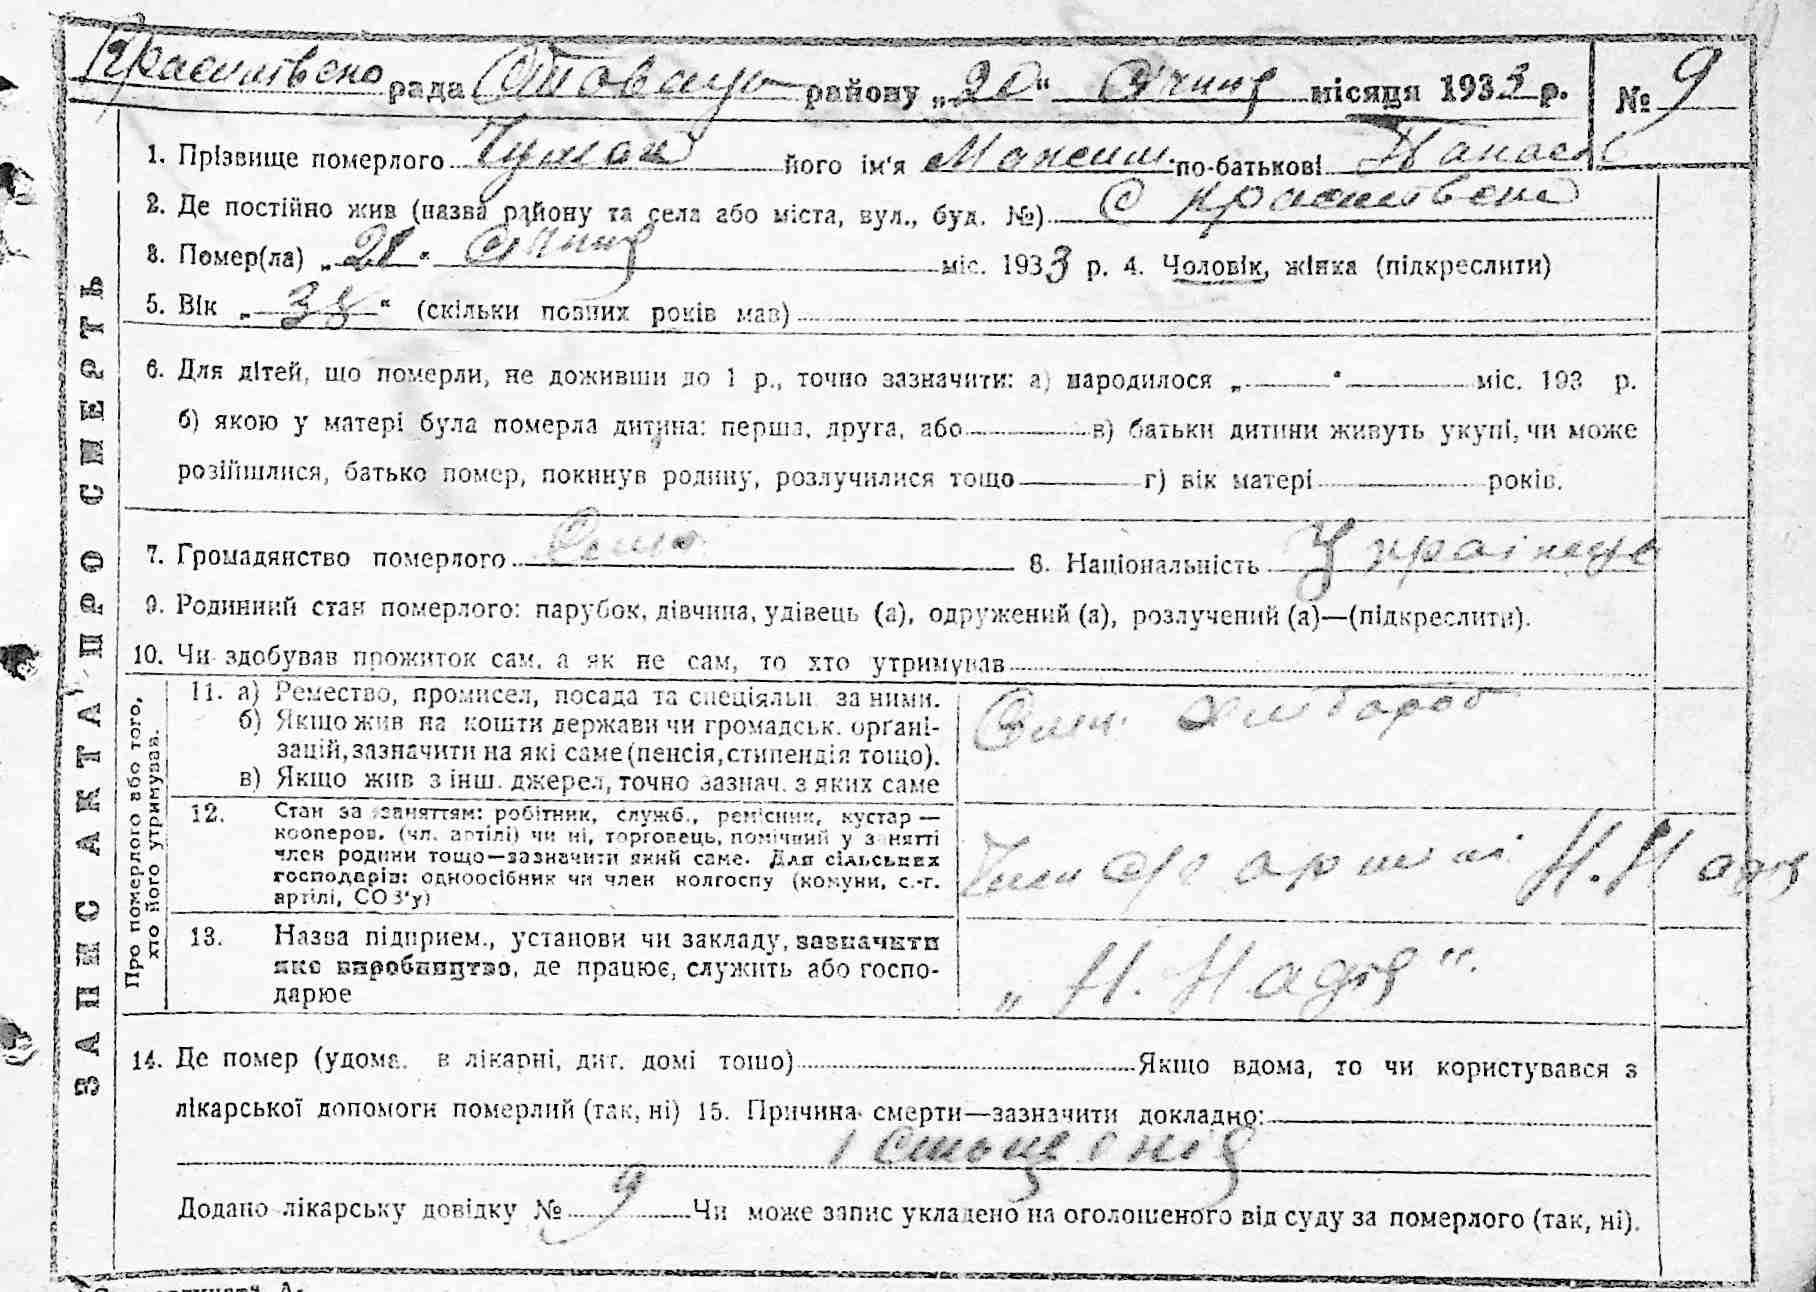 рада районy „20“ Січня місяця 1933 р. № 9
1. Прізвище померлого Чумак його ім'я Максим по-батькові Панасов
2. Де постійно жив (назва району та села або міста, вул., буд. №) С
3. Помер(ла) „ “ Січня міс. 1933 р. 4. Чоловік, жінка (підкреслити)
5. Вік „38“ (скільки повних років мав)
6. Для дітей, що померли, не доживши до 1 р., точно зазначити: а) народилося „ “ міс. 193 р.
б) якою у матері була померла дитина: перша, друга, або в) батьки дитини живуть укупі, чи може
розійшлися, батько помер, покинув родину, розлучилися тощо г) вік матері років.
7. Громадянство померлого 8. Національність Українець
9. Родинний стан померлого: парубок, дівчина, удівець (а), одружений (а), розлучений (а)—(підкреслити).
10. Чи здобував прожиток сам, а як не сам, то хто утримував
ЗАПИС АКТА ПРО СМЕРТЬ
Про померлого або того, хто його утримував.
11. а) Ремество, промисел, посада та спеціяльн. за ними.
б) Якщо жив на кошти держави чи громадськ. органі-
зацій, зазначити на які саме (пенсія, стипендія тощо).
в) Якщо жив з інш. джерел, точно зазнач. з яких саме
хлібороб
12. Стан за заняттям: робітник, служб., ремісник, кустар —
кооперов. (чл. артілі) чи ні, торговець, помічний у занятті
член родини тощо—зазначити який саме. Для сільських
господарів: одноосібник чи член колгоспу (комуни, с.-г.
артілі, СОЗ'у)
Член С/г артілі Н. Надія
13. Назва підприєм., установи чи закладу, зазначити
яке виробництво, де працює, служить або госпо-
дарює
„Н. Надія“.
14. Де помер (удома, в лікарні, дит. домі тощо) Якщо вдома, то чи користувався з
лікарської допомоги померлий (так, ні) 15. Причина смерти—зазначити докладно:
істощенія
Додано лікарську довідку № 9 Чи може запис укладено на оголошеного від суду за померлого (так, ні).